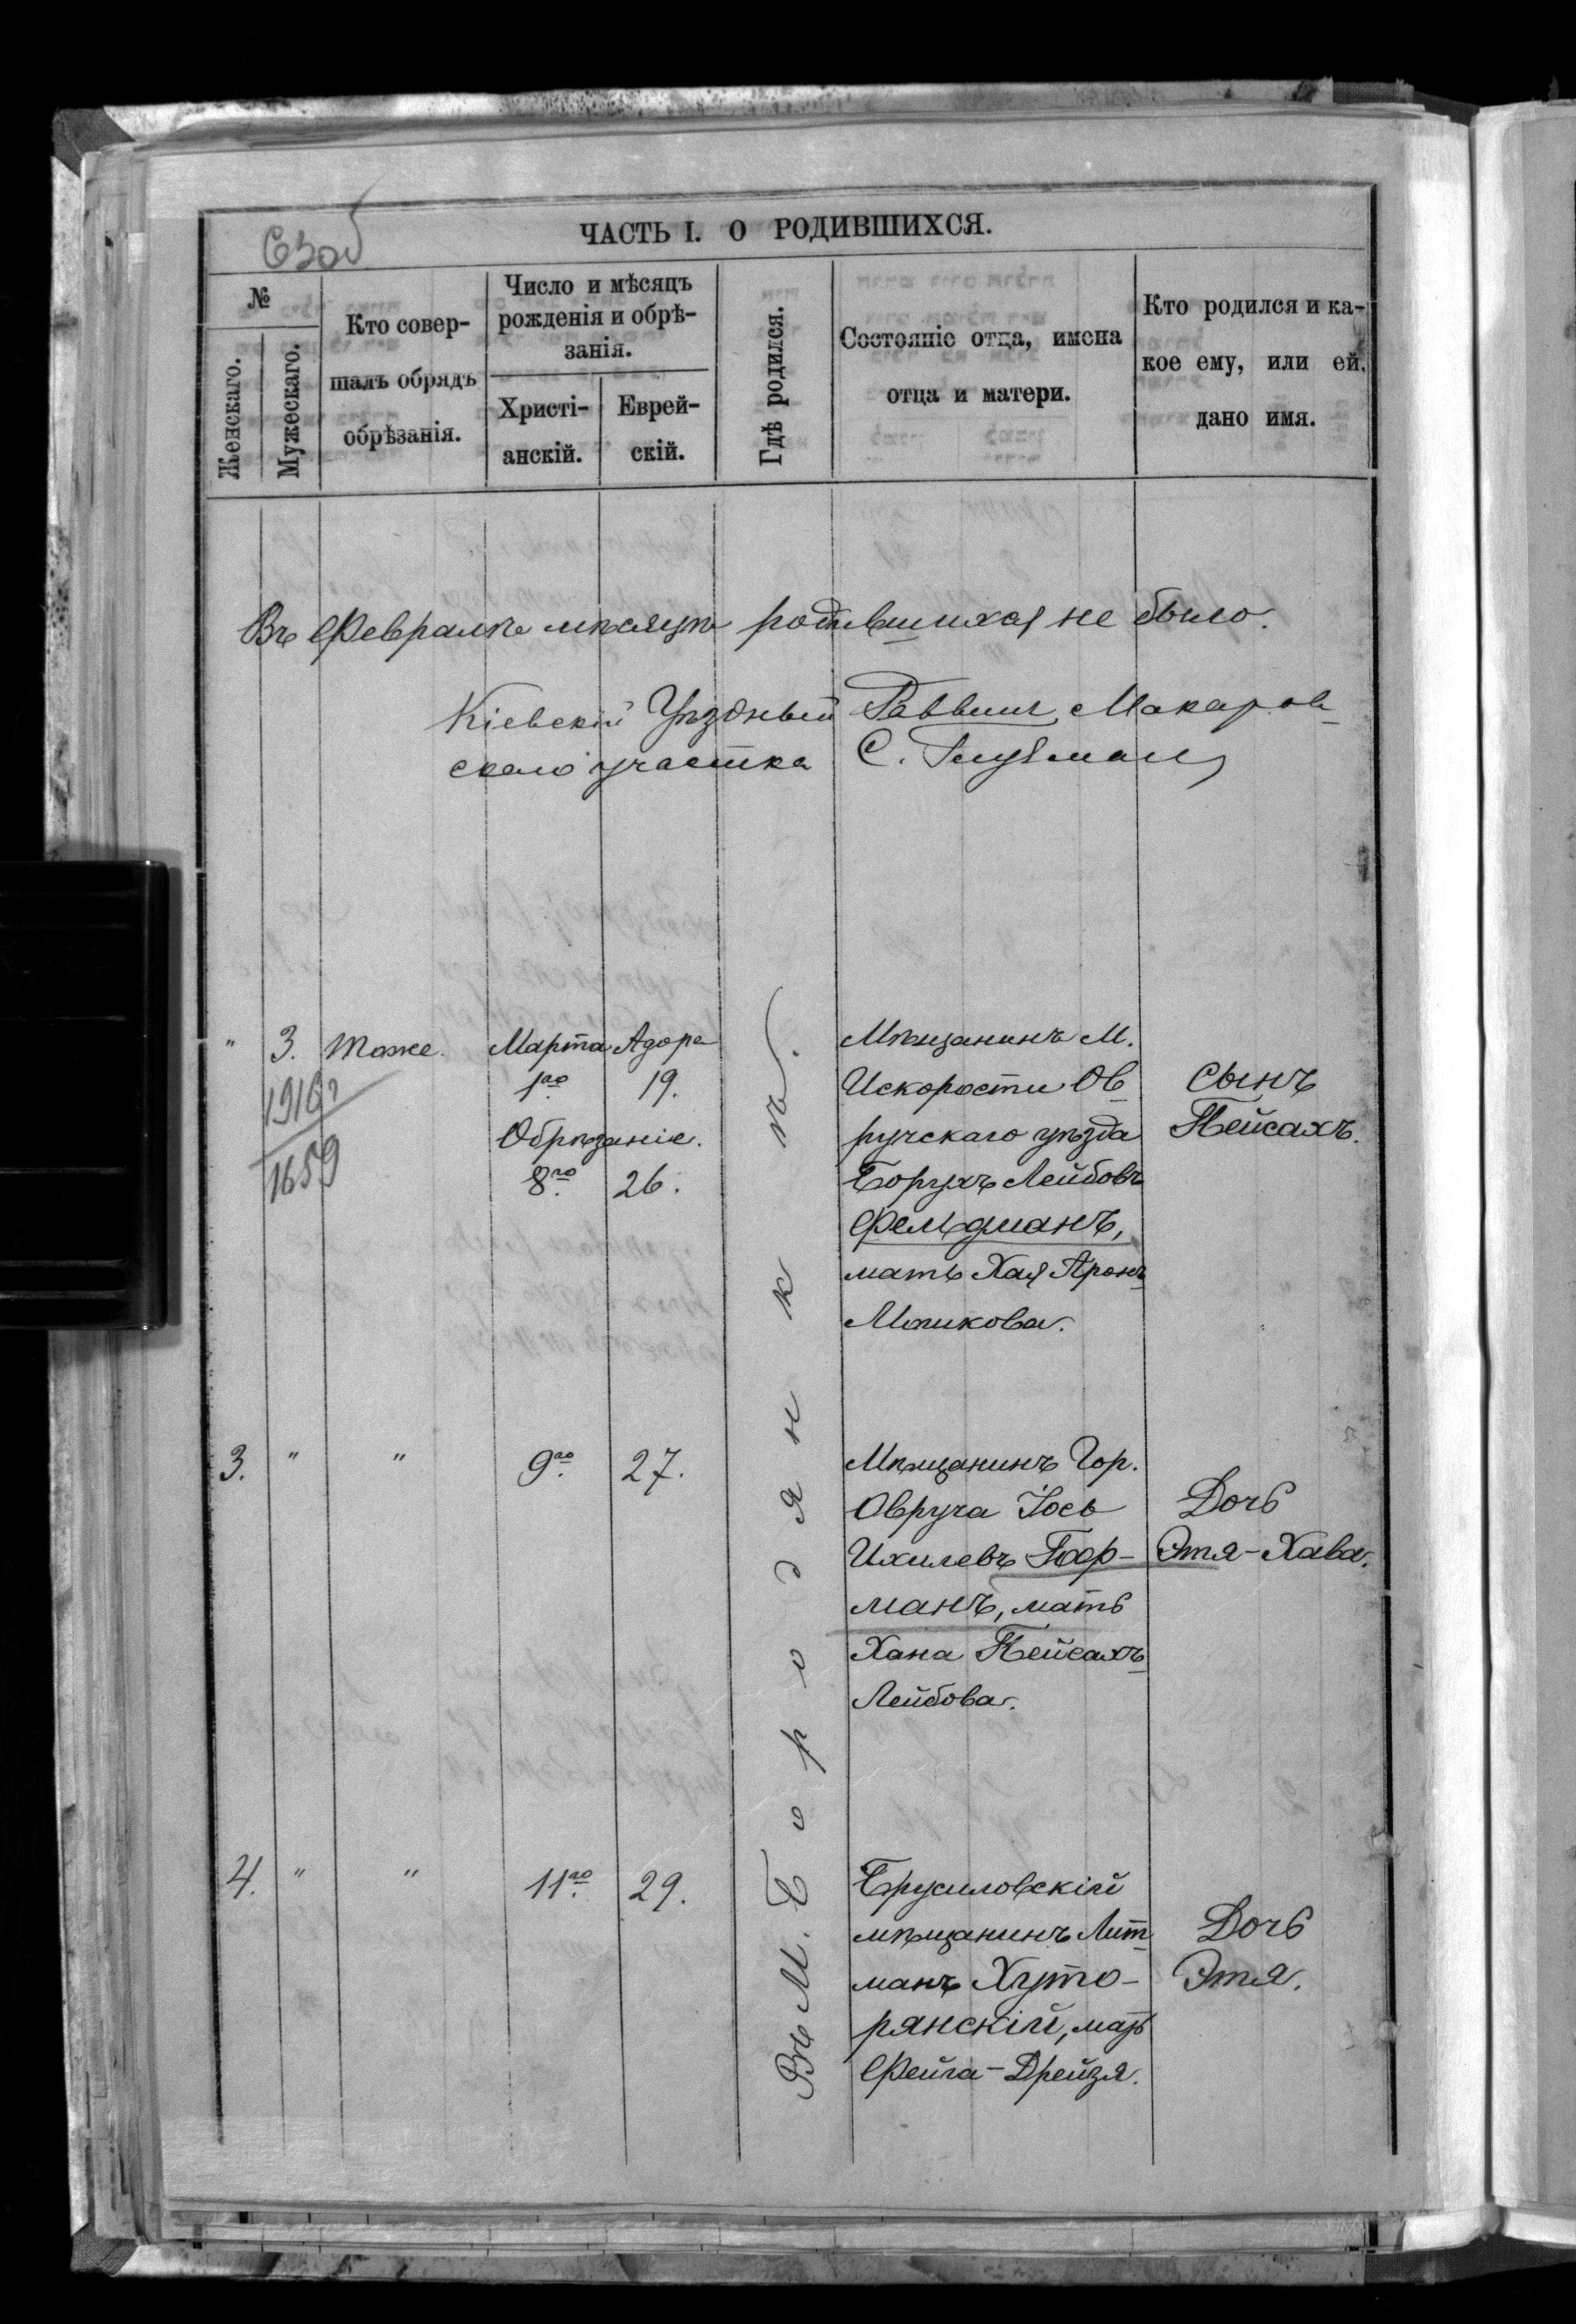 ЧАСТЬ I. О РОДИВШИХСЯ.
630б
№
Женскаго.
Мужескаго.
Кто совер-
шалъ обрядъ
обрѣзанія.
Число и мѣсяцъ
рожденія и обрѣ-
занія.
Христі-
анскій.
Еврей-
скій.
Гдѣ родился.
Состояніе отца, имена
отца и матери.
Кто родился и ка-
кое ему, или ей,
дано имя.
Въ Февралѣ мѣсяцѣ родившихся не было.
Кіевскій Уѣздный Раввинъ Макаров-
скаго участка С.
Въ М. Бородянкѣ.
" 3. Тоже. Марта Адора
1го 19.
Обрѣзаніе.
8го 26.
1916
1659
Мѣщанинъ М.
Искорости Ов-
ручскаго уѣзда
Борухъ Лейбовъ
Фельдманъ,
мать Хая Аронъ-
Мошкова.
Сынъ
Пейсахъ.
3. " " 9го 27.
Мѣщанинъ Гор.
Овруча Іось
Ихилевъ Бор-
манъ, мать
Хана Пейсахъ-
Лейбова.
Дочь
Этя-Хава.
4. " " 11го 29.
Брусиловскій
мѣщанинъ Лит-
манъ Хуто-
рянскій, мать
Фейга-Дрейзя.
Дочь
Этя.